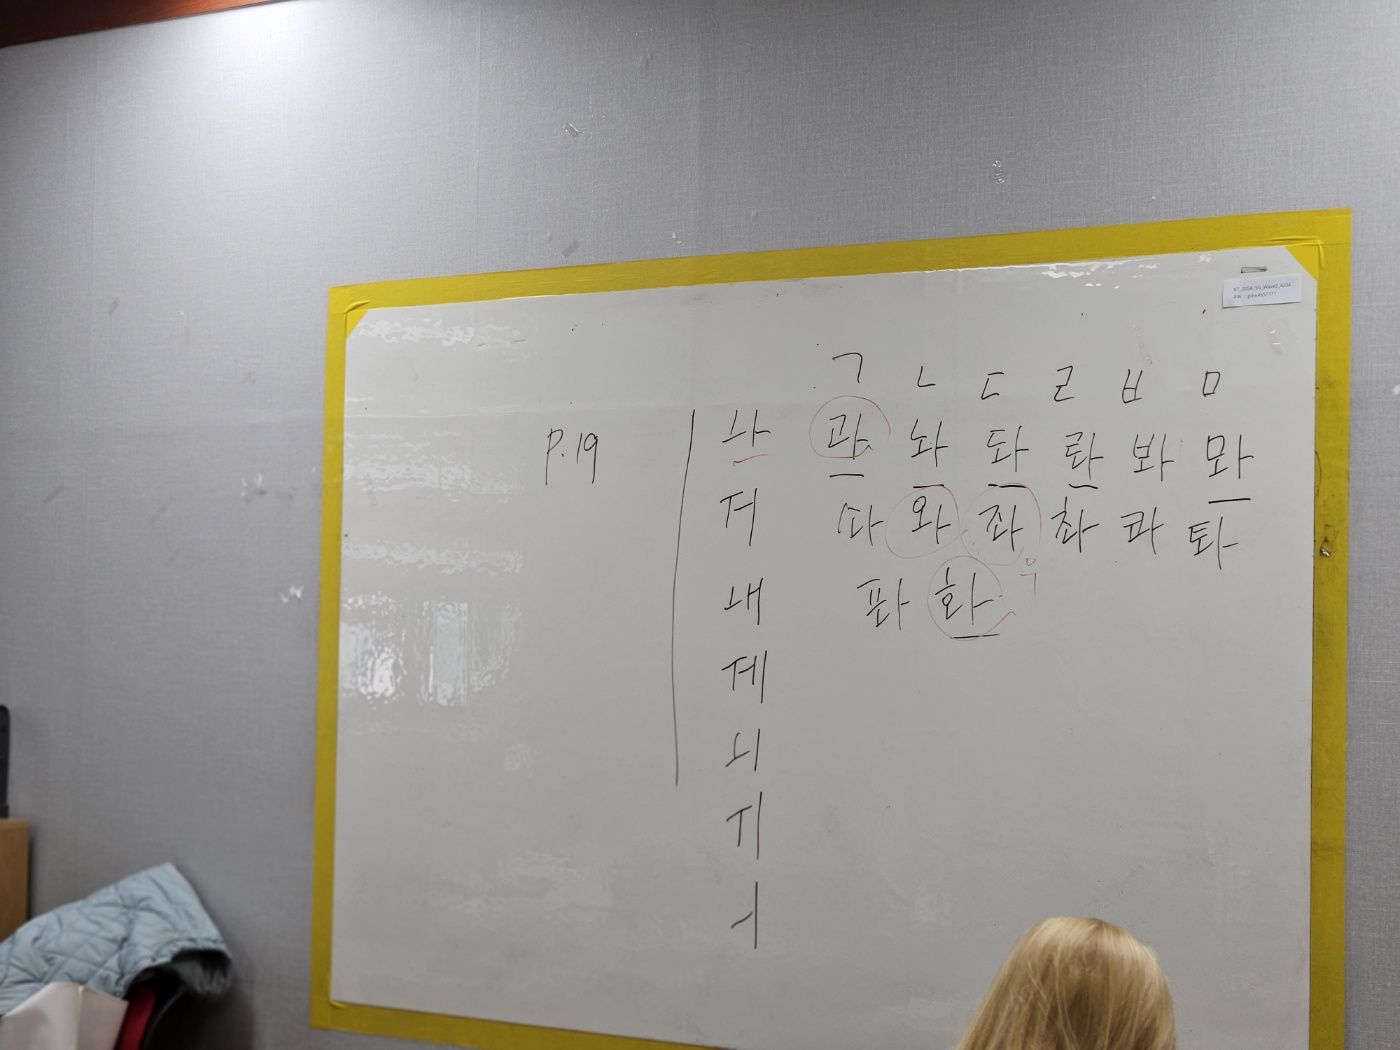 ㄱ ㄴ ㄷ ㄹ ㅂ ㅁ
P.19 ㅘ 과 놔 돠 롸 봐 뫄
ㅝ 와 좌 촤 콰 톼
우
ㅙ 퐈 화
ㅞ
ㅚ
ㅟ
ㅓ